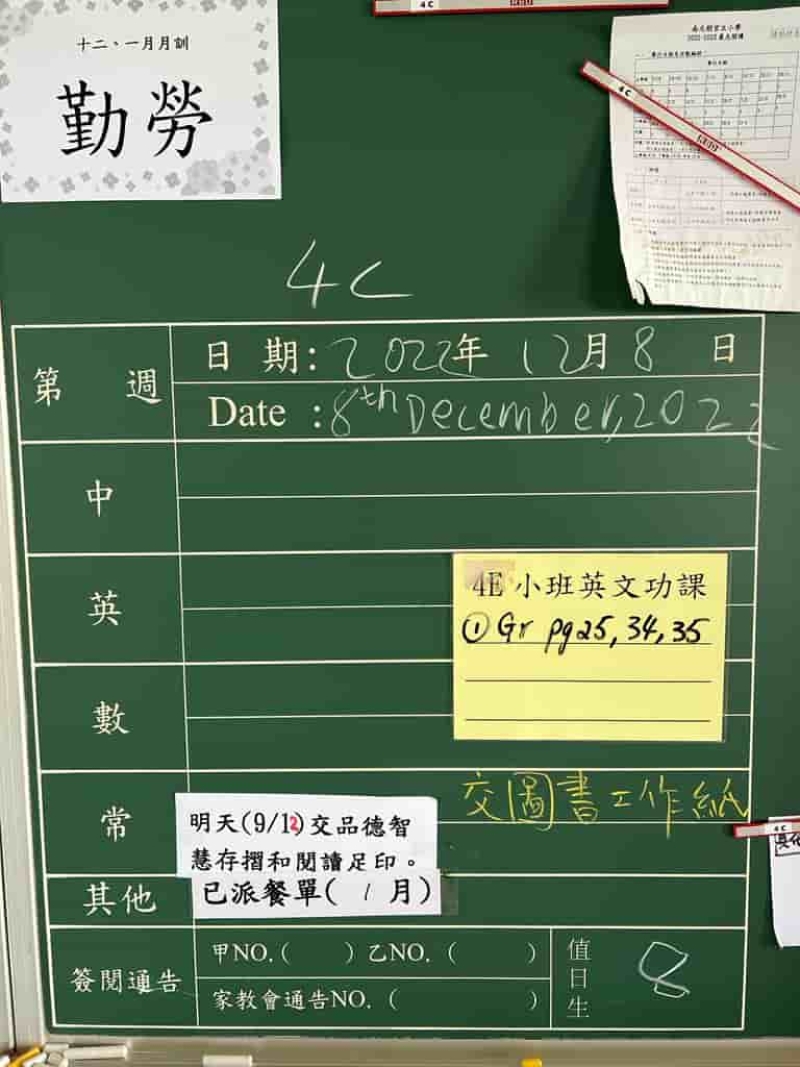 4C
十二、一月月訓
勤勞
4C
4C
第 週
日 期: 2022年 12月 8 日
Date : 8th December, 2022
中
英
4E 小班英文功課
① Gr pg 25, 34, 35
數
常
交圖書工作紙
明天(9/12)交品德智
慧存摺和閱讀足印。
4C
其他
已派餐單( 1 月)
簽閱通告
甲NO. ( ) 乙NO. ( )
家教會通告NO. ( )
值日生
8